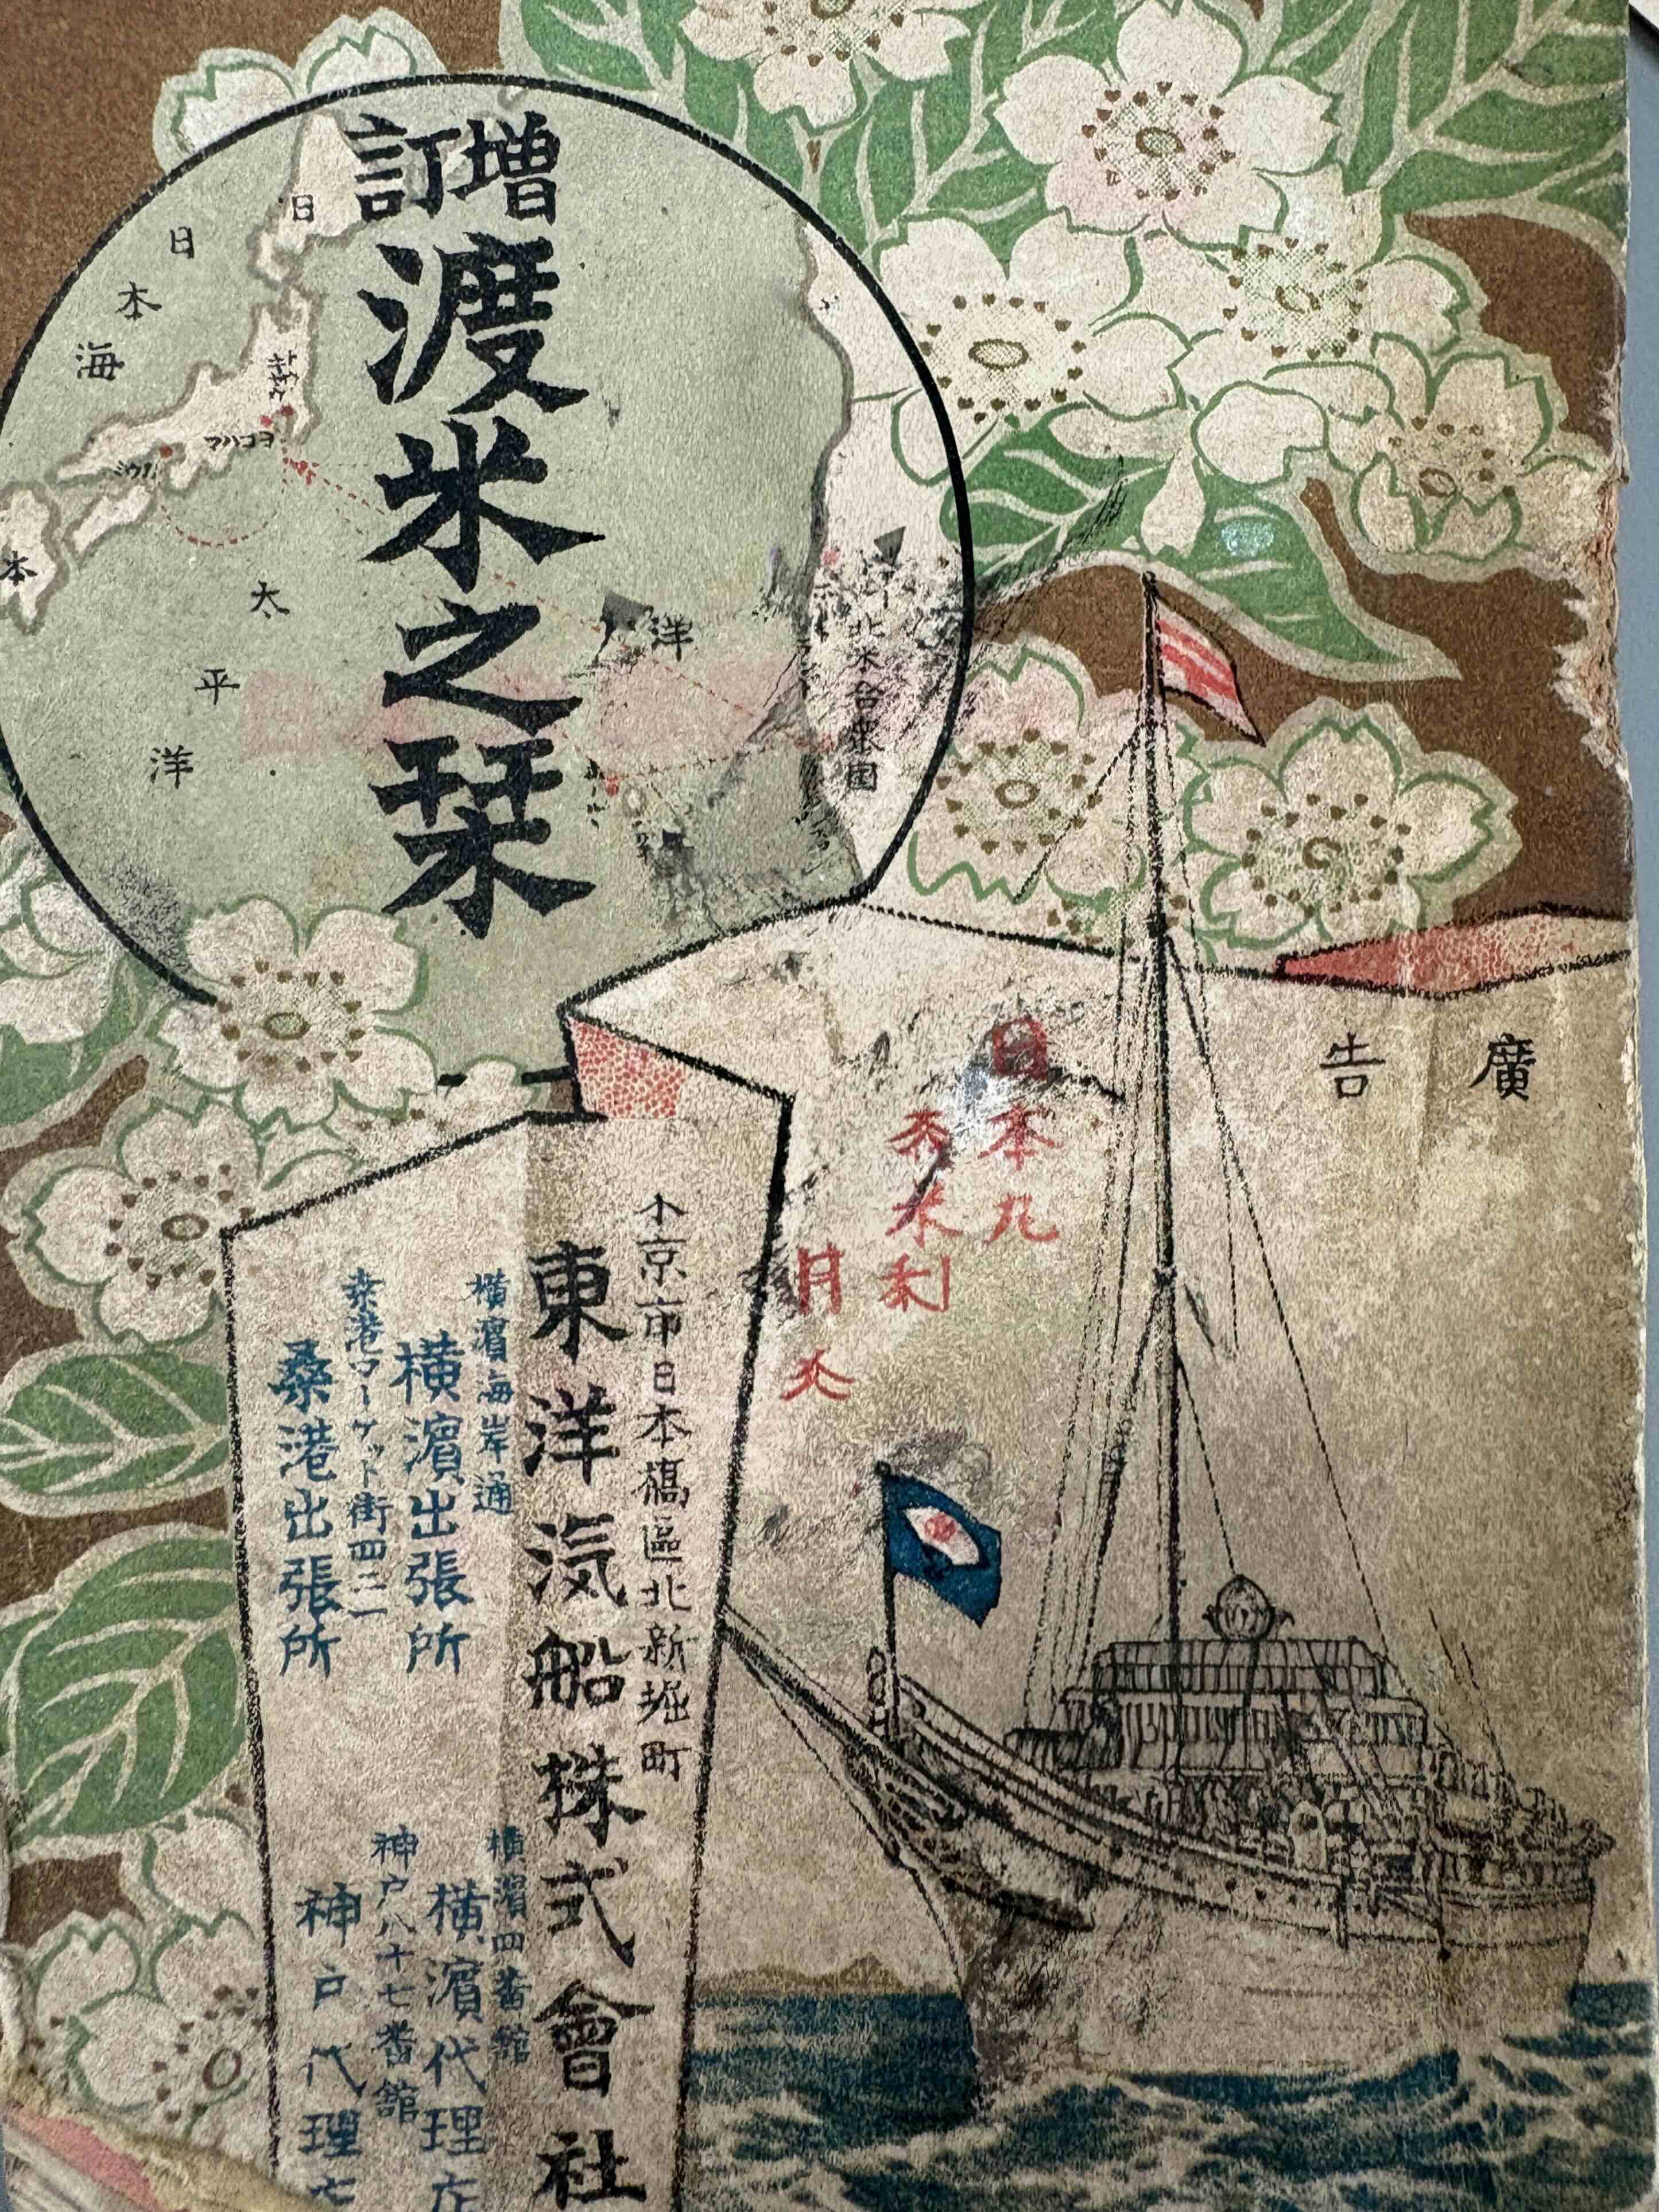 増訂
渡米之栞
日本海
日本
ヨコハマ
太平洋
洋
北米合衆国
廣告
日本丸
亜米利
月丸
京市日本橋區北新堀町
東洋汽船株式會社
横濱海岸通
横濱出張所
桑港マーケット街四二一
桑港出張所
横濱四番館
横濱代理店
神戸八十七番館
神戸代理店